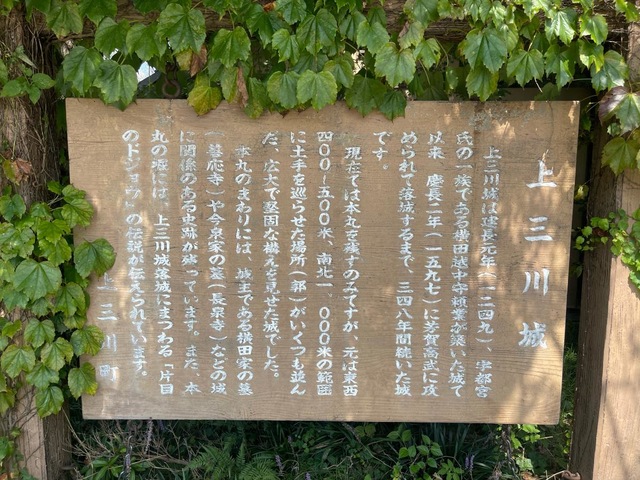 上三川城
上三川城は宝暦元年(一二四九)、宇都宮
氏の一族である横田越中守頼業が築いた城で
以来、慶長二年(一五九七)に芳賀高武に攻
められて落城するまで、三四八年間続いた城
です。
現在では本丸を残すのみですが、元は東西
四〇〇〜五〇〇米、南北一、〇〇〇米の範囲
に土手を巡らせた場所(郭)がいくつも並ん
だ、広大で堅固な構えを見せた城でした。
本丸のまわりには、城主である横田家の墓
(善応寺)や今泉家の墓(長泉寺)などの城
に関係のある史跡が残っています。また、本
丸の濠には、上三川城落城にまつわる「片目
のドジョウ」の伝説が伝えられています。
上三川町